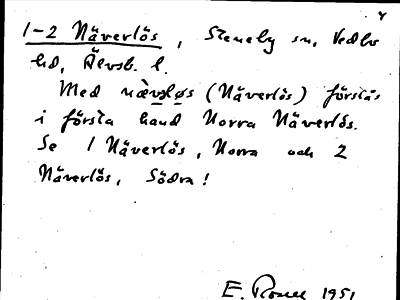 1-2 Näverlös, Steneby sn, Vedbo
hd, Älvsb. l.
Med (Näverlös) förstås
i första hand Norra Näverlös.
Se 1 Näverlös, Norra och 2
Näverlös, Södra!
E. Rosell 1951